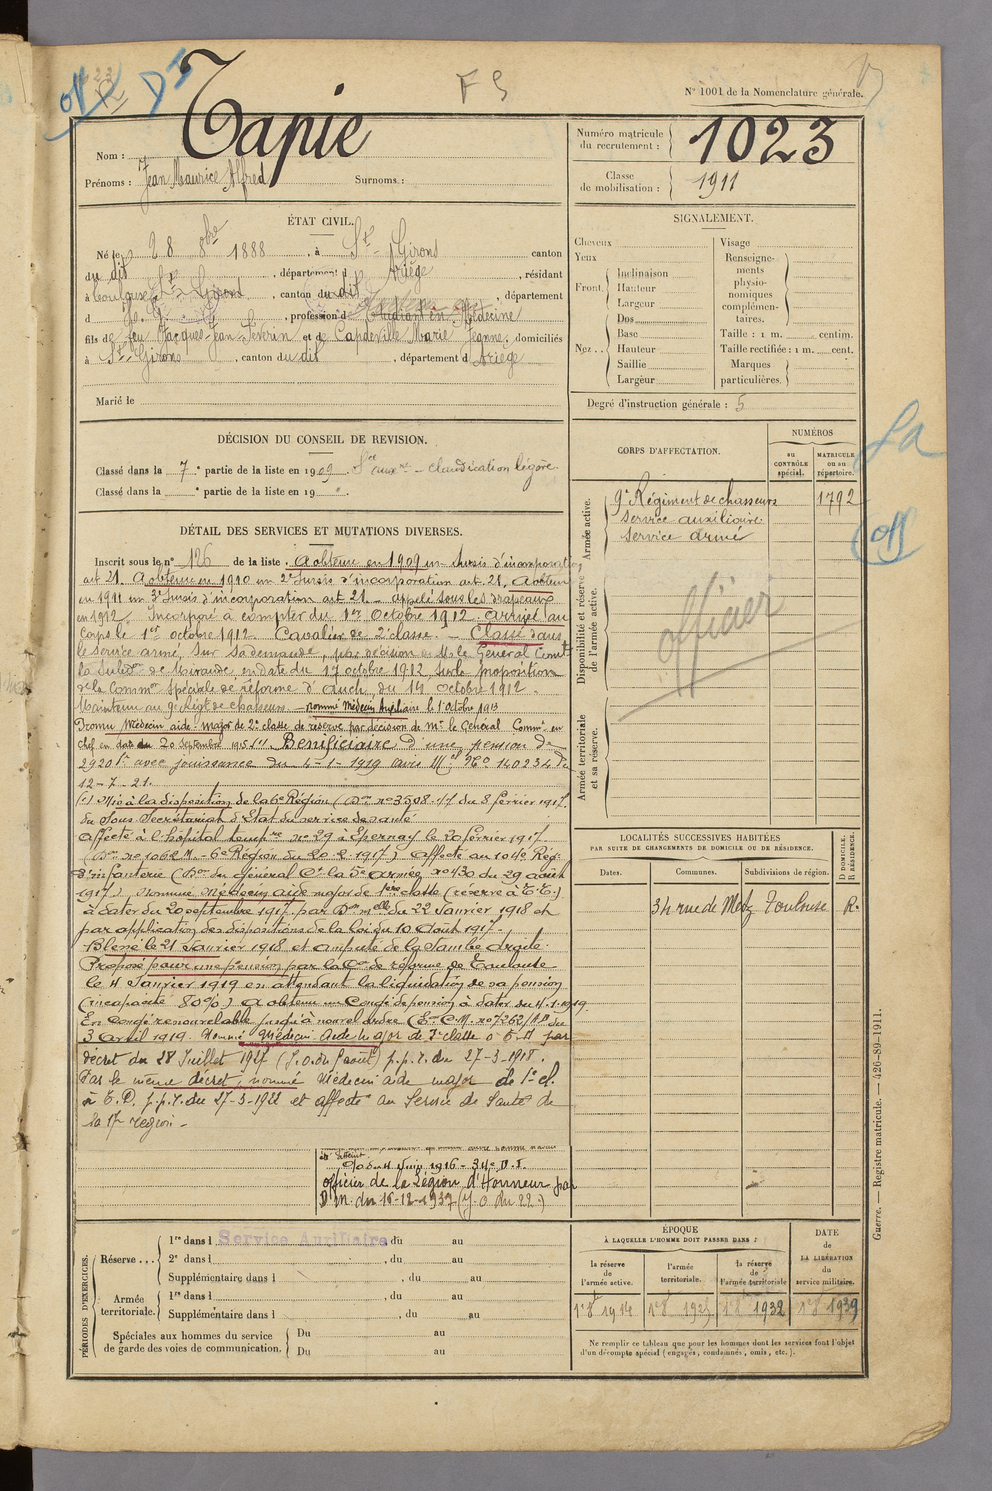 F S
N° 1001 de la Nomenclature générale.
Nom : Tapie
Prénoms : Jean Maurice Alfred Surnoms :
Numéro matricule du recrutement : 1023
Classe de mobilisation : 1911
ÉTAT CIVIL.
Né le 28 8bre 1888, à St-Girons canton
du dit, département d Ariège, résidant
à Toulouse, canton du dit, département
d, profession d Étudiant en Médecine
fils de feu Jacques-Jean-Séverin et de Capdeville Marie Jeanne, domiciliés
à St-Girons, canton du dit, département d Ariège
Marié le
SIGNALEMENT.
Cheveux
Yeux
Front. Inclinaison
Hauteur
Largeur
Nez.. Dos
Base
Hauteur
Saillie
Largeur
Visage
Renseignements physionomiques complémentaires.
Taille : 1 m. centim.
Taille rectifiée : 1 m. cent.
Marques particulières.
Degré d'instruction générale : 5
DÉCISION DU CONSEIL DE REVISION.
Classé dans la 7e partie de la liste en 1909. Sce auxre - claudication légère
Classé dans la " e partie de la liste en 19 "
DÉTAIL DES SERVICES ET MUTATIONS DIVERSES.
Inscrit sous le n° 126 de la liste. A obtenu en 1909 un sursis d'incorporation
art 21. A obtenu en 1910 un 2e sursis d'incorporation art. 21, A obtenu
en 1911 un 3e sursis d'incorporation art 21. - appelé sous les drapeaux
en 1912. Incorporé à compter du 1er octobre 1912. arrivé au
Corps le 1er octobre 1912. Cavalier de 2e classe. - Classé dans
le service armé, sur sa demande, par décision de M. le Général Comt
la Subdon de Mirande en date du 17 octobre 1912, sur la proposition
de la Common Spéciale de réforme d'Auch, du 14 octobre 1912.
Maintenu au 9e Régt de chasseurs - nommé Médecin Auxiliaire le 1 octobre 1913
Promu Médecin aide major de 2e classe de réserve par décision de Mr le Général Commt en
chef en date du 20 septembre 1915 (1) Bénéficiaire d'une pension de
2920 f avec jouissance du 4-1-1919 avis Mel No 140234 du
12-7-21.
(1) Mis à la disposition de la 6e Région (Don no 3508 du 8 février 1917.
du Sous-Secrétariat d'Etat du service de santé
affecté à l'hôpital tempre no 29 à Epernay le 20 février 1917
(Don no 1062 M. - 6e Région du 20-2-1917) Affecté au 104e Rég.
d'infanterie (Don du Général Ct la De Armée, no 430 du 29 août
1917) Nommé Médecin aide major de 1ère classe (réserve à T.T.)
à dater du 20 septembre 1917 par Don melle du 22 Janvier 1918 et
par application des dispositions de la loi du 10 Août 1917.
Blessé le 21 Janvier 1918 et amputé de la Jambe droite.
Proposé pour une pension par la Con de réforme de Toulouse
le 4 Janvier 1919 en attendant la liquidation de sa pension
(incapacité 80%) a obtenu un Congé de pension à dater du 4-1-1919.
En congé renouvelable jusqu'à nouvel ordre
3 avril 1919. Nommé Médecin Aide Major de 2e classe à T.D. par
décret du 28 Juillet 1917 p.p.r. du 27-3-1918.
Par le même décret, nommé Médecin aide major de 1e cl.
à T.D. p.p.r. du 27-3-1922 et affecté au Service de Santé de
la 17e région -
11 Juin 1916 - 34e D.I.
officier de la Légion d'Honneur par
D.M. du 16-12-1937 (J.O. du 22.)
CORPS D'AFFECTATION.
NUMÉROS
au CONTRÔLE spécial.
MATRICULE ou au répertoire.
Armée active.
9e Régiment de chasseurs 1792
Service auxiliaire
Service armé
Disponibilité et réserve de l'armée active.
officier
Armée territoriale et sa réserve.
LOCALITÉS SUCCESSIVES HABITÉES
PAR SUITE DE CHANGEMENTS DE DOMICILE OU DE RÉSIDENCE.
Dates. Communes. Subdivisions de région. D DOMICILE. R RÉSIDENCE.
34 rue de Metz Toulouse R.
PÉRIODES D'EXERCICES.
Réserve... 1re dans l Service Auxiliaire, du au
2e dans l, du au
Supplémentaire dans l, du au
Armée territoriale. 1re dans l, du au
Supplémentaire dans l, du au
Spéciales aux hommes du service de garde des voies de communication. Du au
Du au
ÉPOQUE
À LAQUELLE L'HOMME DOIT PASSER DANS :
la réserve de l'armée active.
l'armée territoriale.
la réserve de l'armée territoriale
DATE de LA LIBÉRATION du service militaire.
1er 8bre 1914 1er 8bre 1925 1er 8bre 1932 1er 8bre 1939
Ne remplir ce tableau que pour les hommes dont les services font l'objet
d'un décompte spécial (engagés, condamnés, omis, etc.).
Guerre. — Registre matricule. — 426-89-1911.